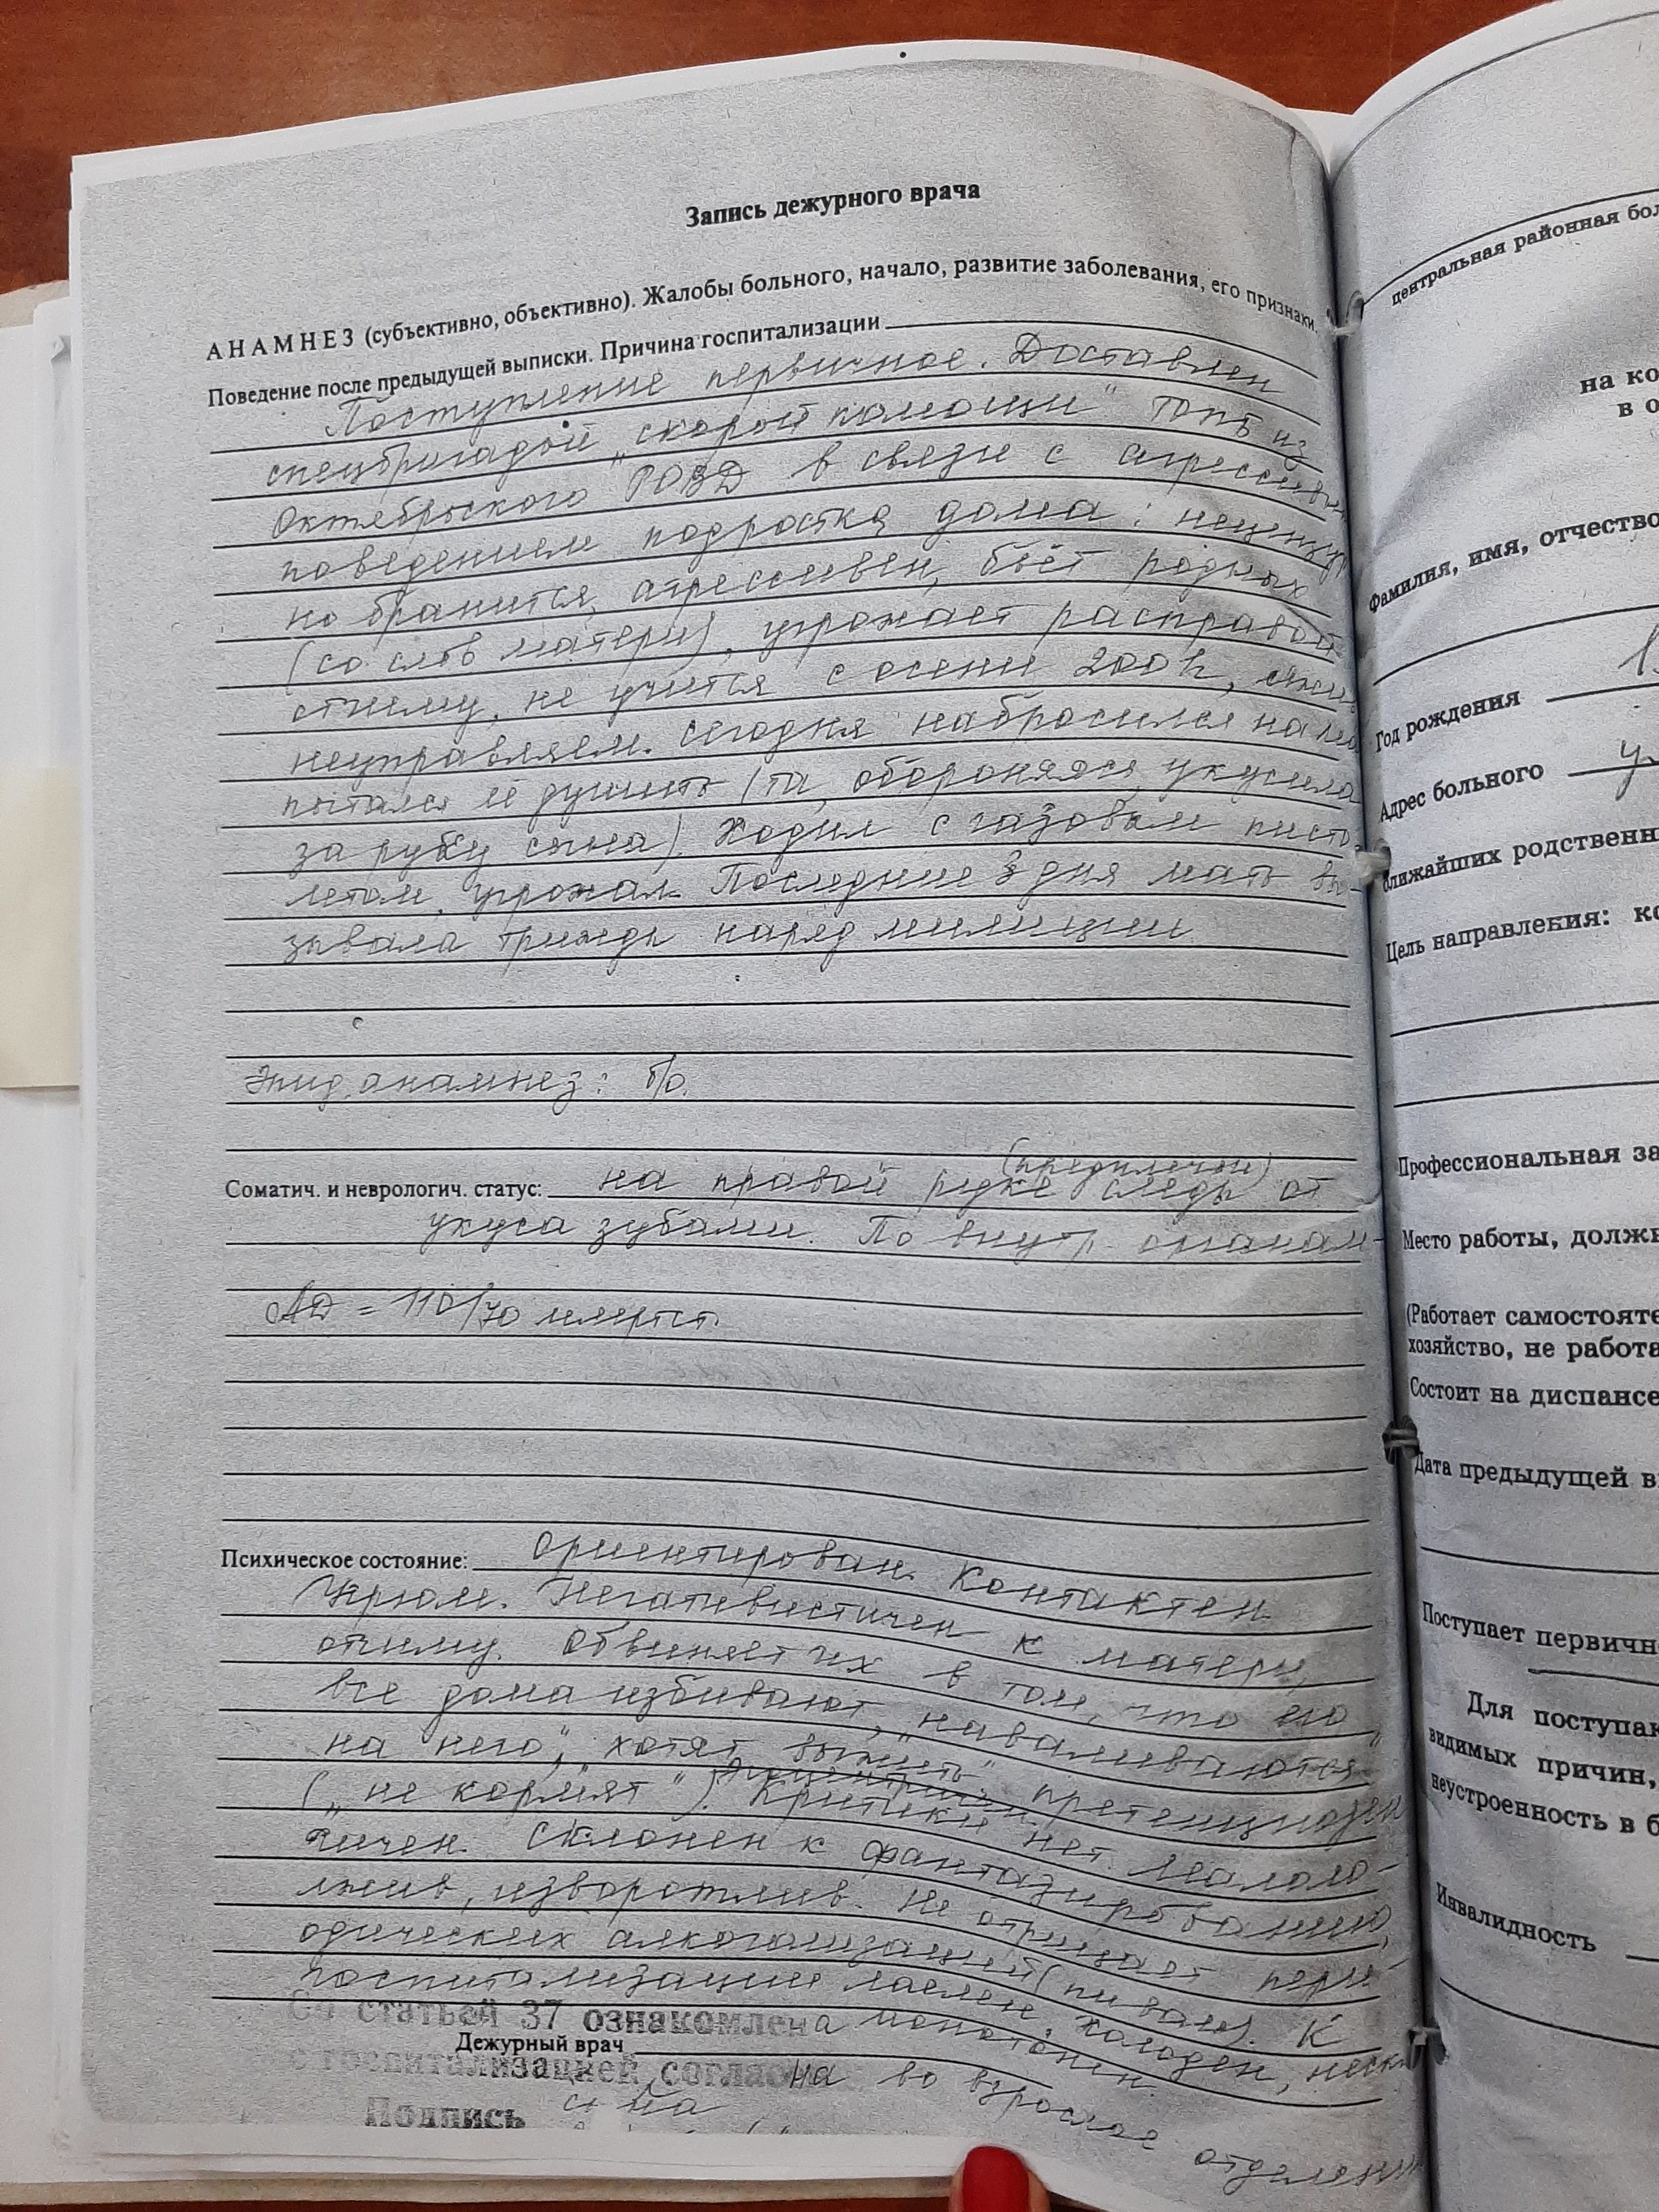 Запись дежурного врача
АНАМНЕЗ (субъективно, объективно). Жалобы больного, начало, развитие заболевания, его признаки.
Поведение после предыдущей выписки. Причина госпитализации
Поступление первичное. Доставлен
спецбригадой „скорой помощи" ТОПБ из
Октябрьского РОВД в связи с агрессивн
поведением подростка дома: нецензур
но бранится, агрессивен, бьёт родных
(со слов матери), угрожает расправой
отчиму, не учится с осени 200
неуправляем. Сегодня набросился на
пытался её душить (та, обороняясь, укусила
за руку сына). Ходил с газовым писто
летом, угрожал. Последние 3 дня мать вы-
зывала трижды наряд милиции
Эпид. анамнез: б/о.
(предплечье)
Соматич. и неврологич. статус: на правой руке следы от
укуса зубами. По внутр. органам-
АД = 110/70 мм рт ст.
Психическое состояние: Ориентирован. Контактен
Угрюм. Негативистичен к матери,
отчиму. Обвиняет их в том, что его
все дома избивают, „наваливаются
на него", хотят „выжить" претенциозен
(„не кормят"). Критики нет. Малоло-
гичен. Склонен к фантазированию,
лжив, изворотлив. Не отрицает пери-
одических алкоголизаций (пивом). К
госпитализации холоден, неск
монотонен.
Со статьей 37 ознакомлена
Дежурный врач
с госпитализацией согласна во взрослое отделен
сына
Подпись
центральная районная бол
на ко
в о
Фамилия, имя, отчество
Год рождения
Адрес больного
ближайших родственн
Цель направления: ко
Профессиональная за
Место работы, должн
(Работает самостояте
хозяйство, не работа
Состоит на диспансе
Дата предыдущей в
Поступает первичн
Для поступа
видимых причин,
неустроенность в б
Инвалидность